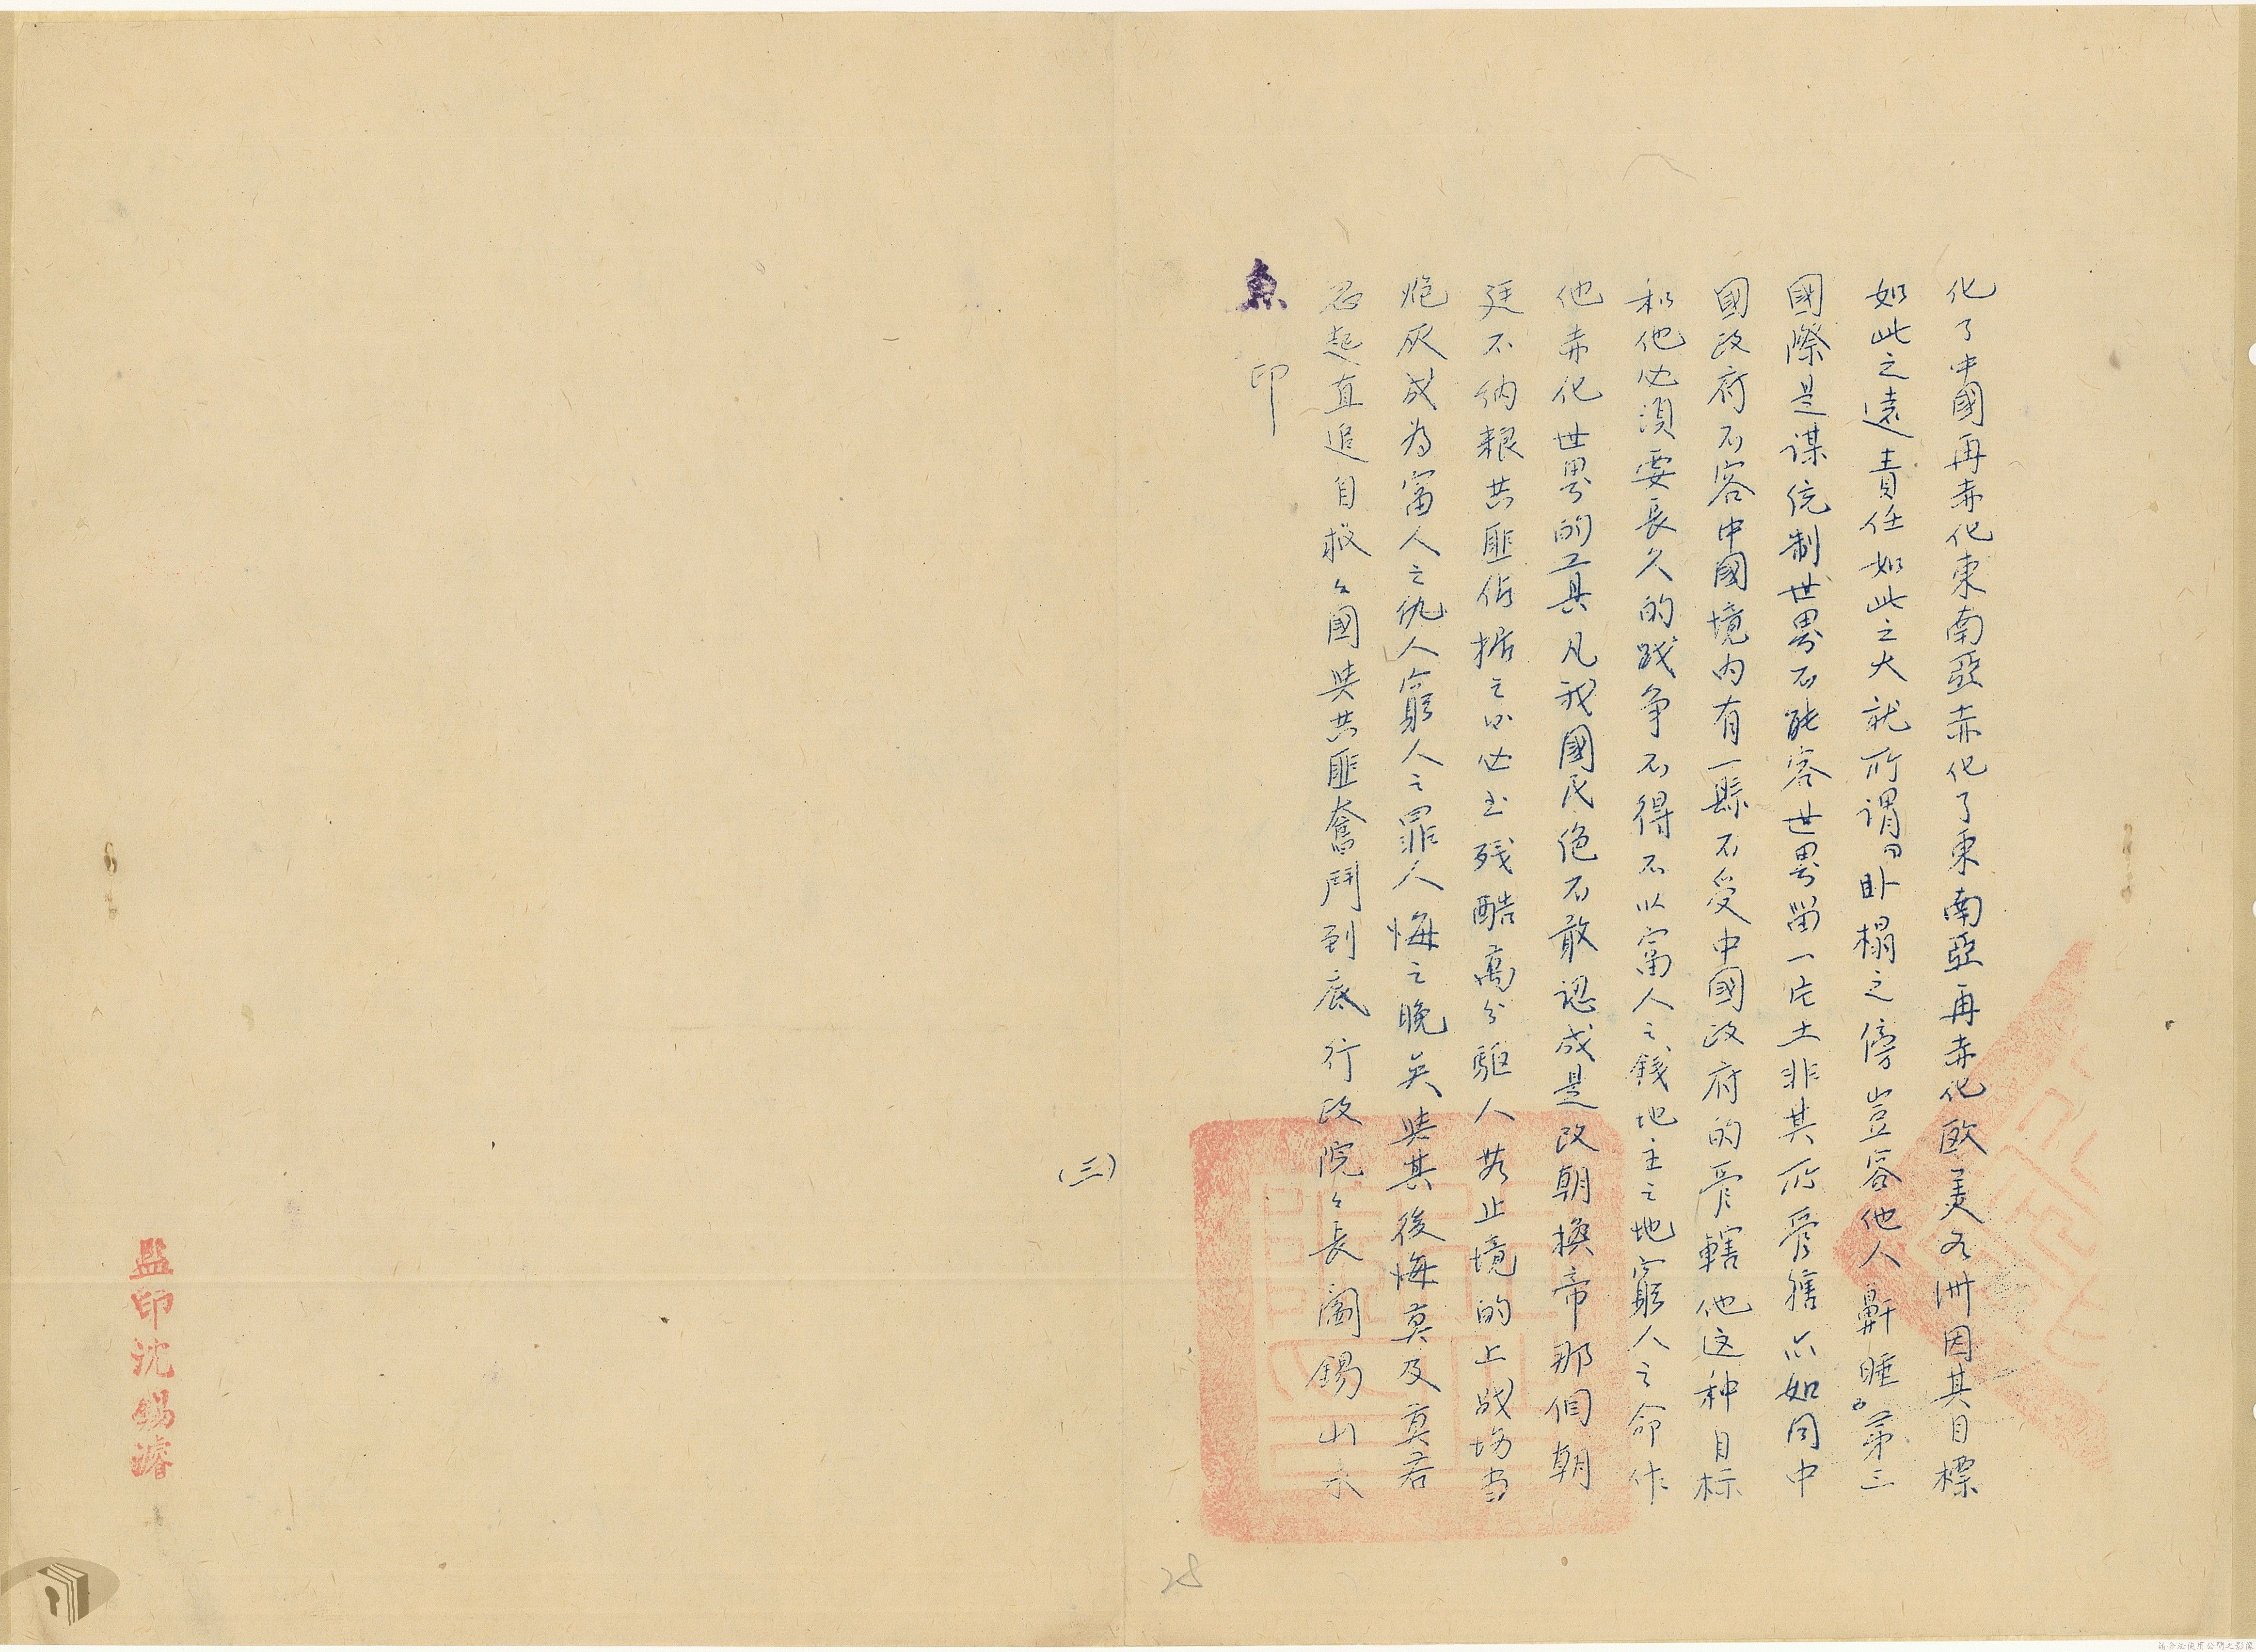 化了中國再赤化東南亞赤化了東南亞再赤化歐美各洲因其目標
如此之遠責任如此之大就所謂「卧榻之傍豈容他人鼾睡」第三
國際是謀統制世界不能容世界留一片土非其所管轄亦如同中
國政府不容中國境內有一縣不受中國政府的管轄他这种目标
和他必須要長久的战争不得不以富人之錢地主之地窮人之命作
他赤化世界的工具凡我國民絕不敢認成是改朝換帝那個朝
廷不納粮共匪佔据之必至残酷萬分驅人若止境的上战場当
炮灰成為富人之仇人窮人之罪人悔之晚矣與其後悔莫及莫若
起直追自救々國與共匪奮鬥到底行政院々長閻錫山
魚 印
(三)
28
監印沈錫濬
請合法使用公開之影像